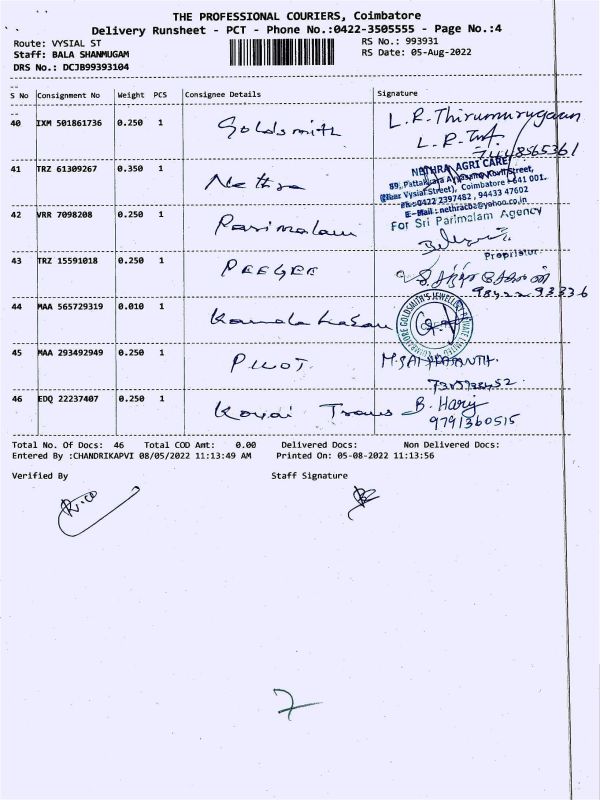 THE PROFESSIONAL COURIERS, Coimbatore
Delivery Runsheet - PCT - Phone No.:0422-3505555 - Page No.:4
Route: VYSIAL ST RS No.: 993931
Staff: BALA SHANMUGAM RS Date: 05-Aug-2022
DRS No.: DCJB99393104
S No Consignment No Weight PCS Consignee Details Signature
40 IXM 501861736 0.250 1 Goldsmith L.R-Thirumurugaan
L.R-
7448565361
41 TRZ 61309267 0.350 1 Nethra NETHRA AGRI CARE
89, Pattakkara Street,
(Near Vysial Street), Coimbatore - 641 001.
Ph:0422 2397482, 94433 47602
E-Mail: nethracbe@yahoo.co.in
42 VRR 7098208 0.250 1 Parimalam For Sri Parimalam Agency
Propritor
43 TRZ 15591018 0.250 1 PEEGEE
98422 93336
44 MAA 565729319 0.010 1 Kamala hasan GOLDSMITH'S JEWELLERY PRIVATE LIMITED COIMBATORE
45 MAA 293492949 0.250 1 M.SAI PRASANTH.
46 EDQ 22237407 0.250 1 Kovai Trans B. Hari
9791360515
Total No. Of Docs: 46 Total COD Amt: 0.00 Delivered Docs: Non Delivered Docs:
Entered By :CHANDRIKAPVI 08/05/2022 11:13:49 AM Printed On: 05-08-2022 11:13:56
Verified By Staff Signature
7